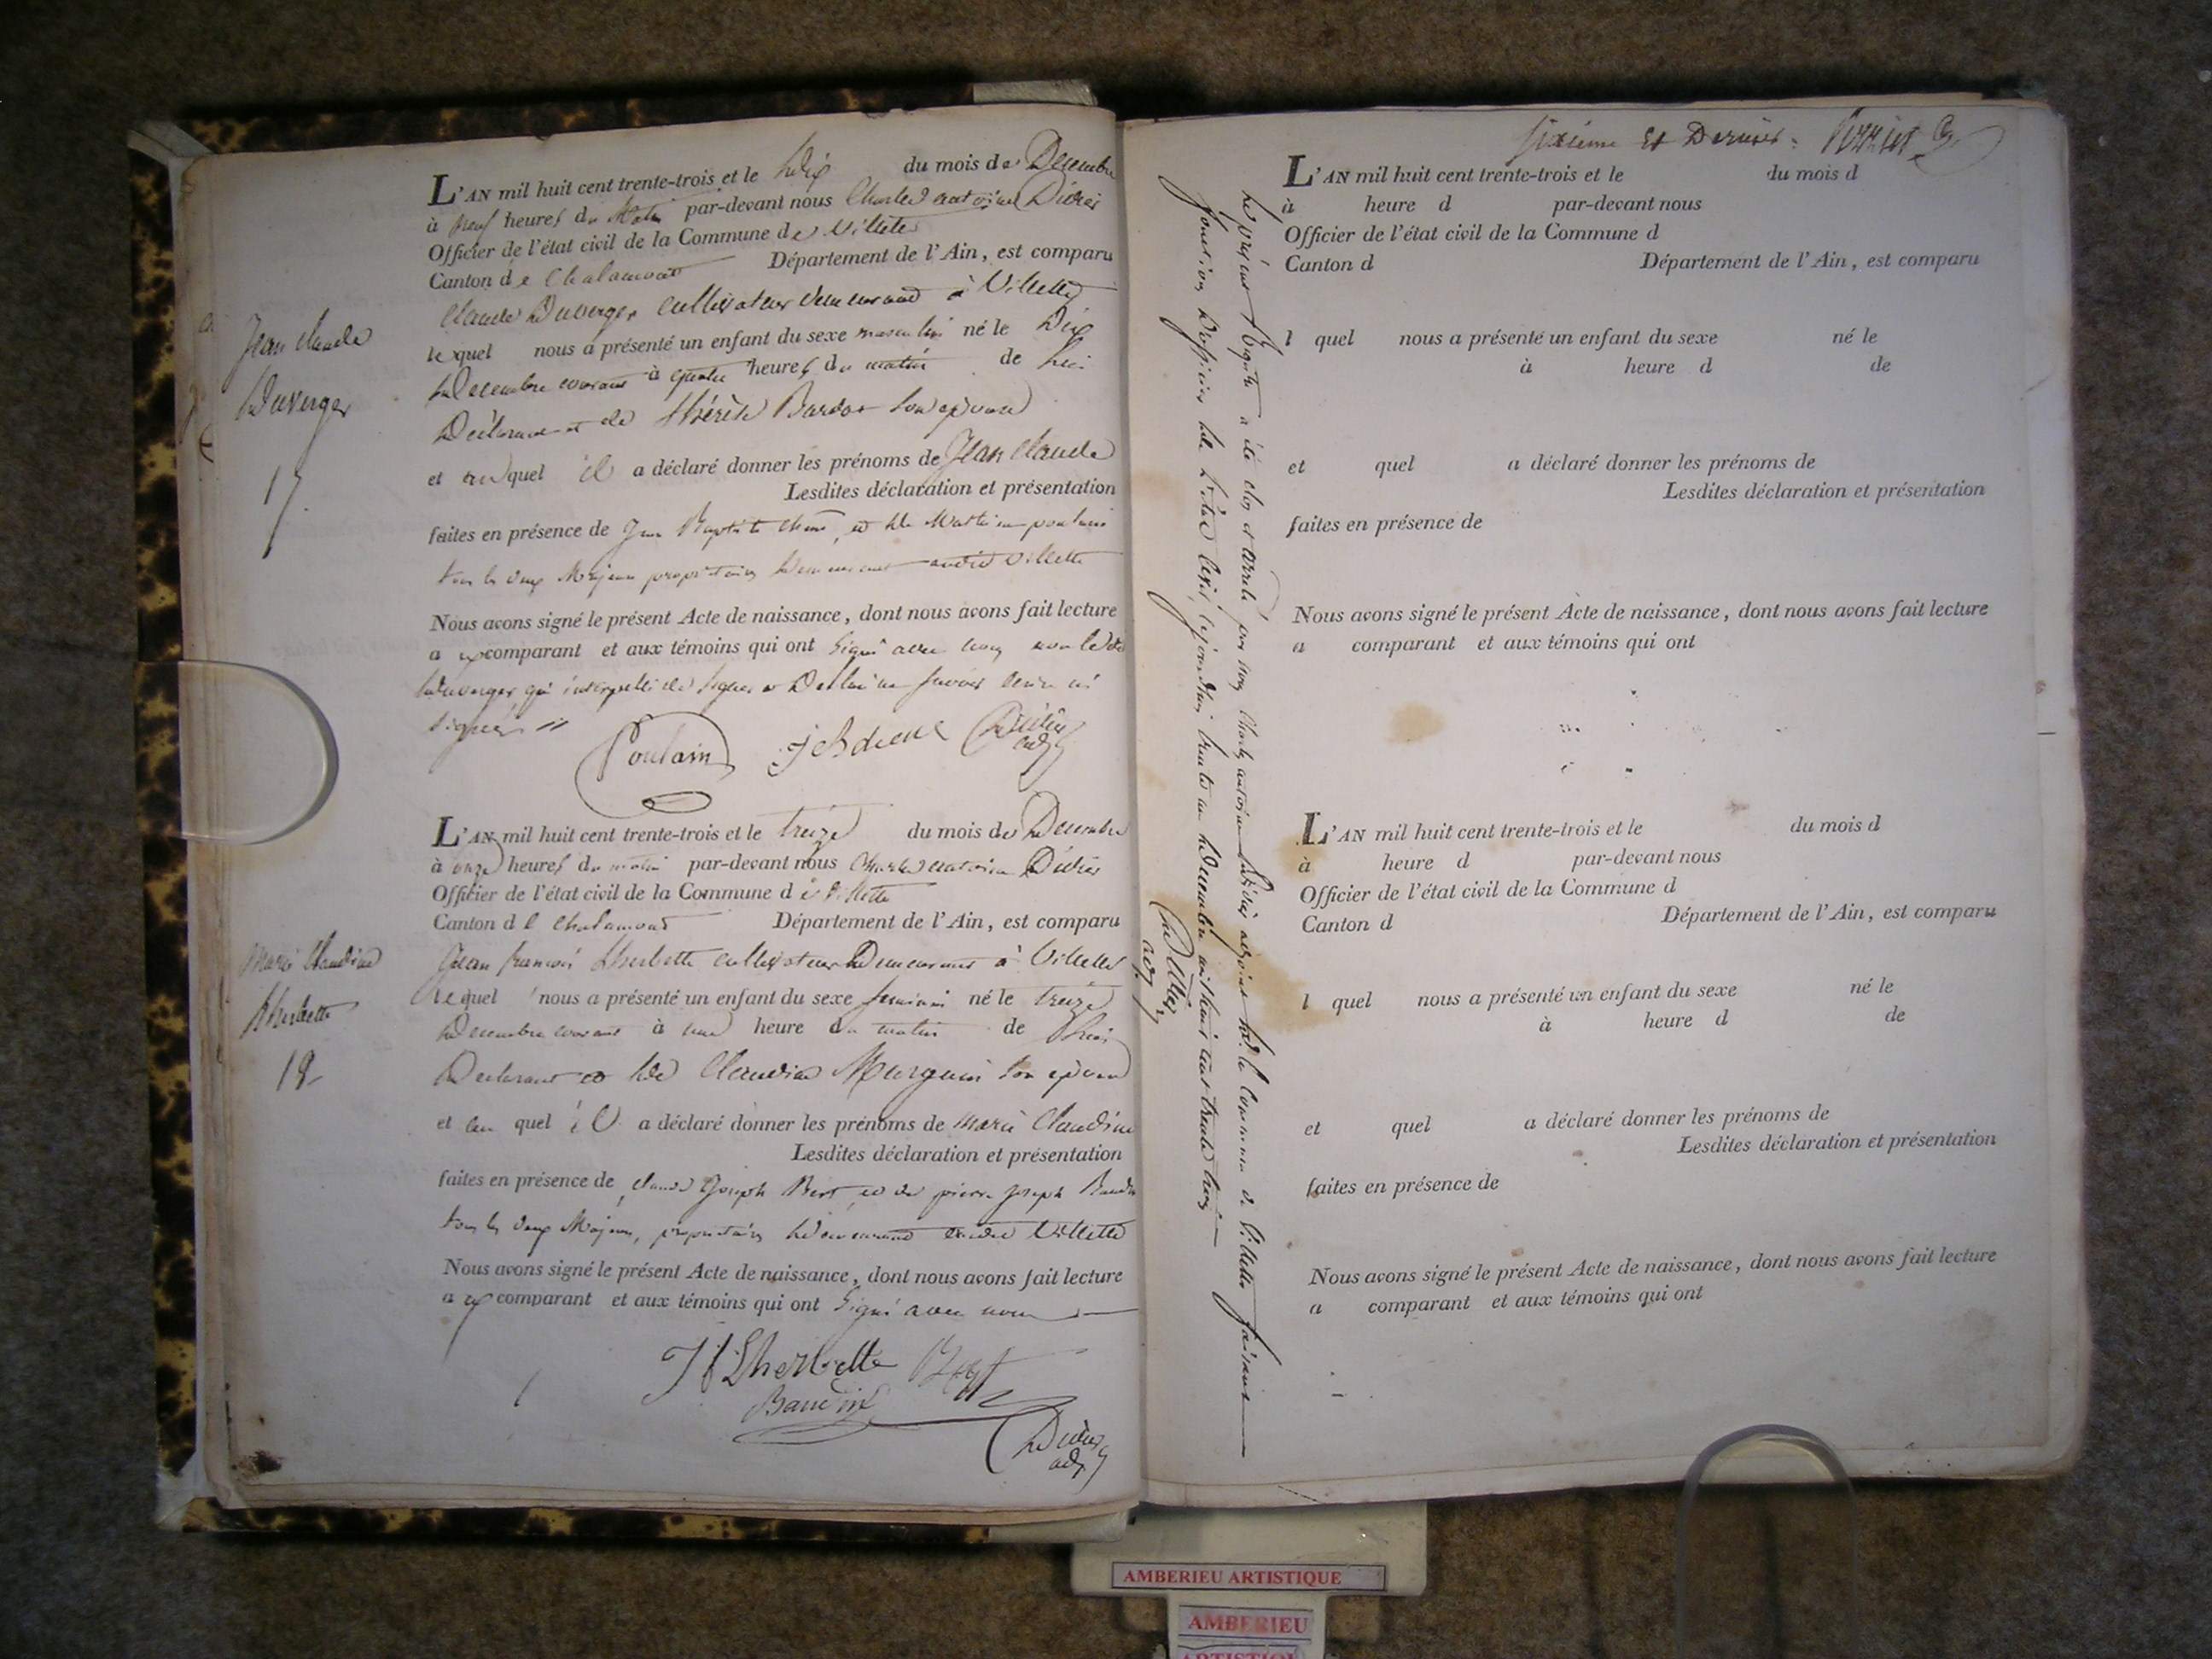 Jean Claude
Duverger
17
L'AN mil huit cent trente-trois et le dix du mois de Decembre
à neuf heures du Matin par-devant nous Charles antoine Didier
Officier de l'état civil de la Commune de Villette
Canton de Chalamont Département de l'Ain, est comparu
Claude Duverger cultivateur demeurant à Villette
lequel nous a présenté un enfant du sexe masculin né le Dix
Decembre courant à quatre heures du matin de lui
Déclarant et de Thérèse Bardot son epouse
et auquel il a déclaré donner les prénoms de Jean Claude
Lesdites déclaration et présentation
faites en présence de Jean Baptiste et de Martin poulain
tous les deux Majeurs propriétaires demeurant audit Villette
Nous avons signé le présent Acte de naissance, dont nous avons fait lecture
aux comparant et aux témoins qui ont signé avec nous non ledit
Duverger qui interpellé de signer a Déclaré ne savoir
signer
Poulain Didier
adj
Marie Claudine
Lherbette
18
L'AN mil huit cent trente-trois et le treize du mois de Decembre
à onze heures du matin par-devant nous Charles antoine Didier
Officier de l'état civil de la Commune de Villette
Canton de Chalamont Département de l'Ain, est comparu
Jean francois Lherbette cultivateur Demeurant à Villette
lequel nous a présenté un enfant du sexe feminin né le treize
Decembre courant à une heure du matin de lui
Declarant et de Claudine Murguin son epouse
et au quel il a déclaré donner les prénoms de marie Claudine
Lesdites déclaration et présentation
faites en présence de Claude Joseph et de pierre joseph Baudin
tous les deux Majeurs, propriétaires demeurant audit Villette
Nous avons signé le présent Acte de naissance, dont nous avons fait lecture
aux comparant et aux témoins qui ont signé avec nous
J f Lherbette
Baudin
Didier
adj
Le présent registre a été clos et arrêté par nous Charles antoine Didier adjoint de la Commune de Villette faisant
fonction D'officier de l'état Civil cejourd'hui trente un Decembre mil huit cent trente trois
Didier
adj
sixième et Dernier.
L'AN mil huit cent trente-trois et le du mois d
à heure d par-devant nous
Officier de l'état civil de la Commune d
Canton d Département de l'Ain, est comparu
l quel nous a présenté un enfant du sexe né le
à heure d de
et quel a déclaré donner les prénoms de
Lesdites déclaration et présentation
faites en présence de
Nous avons signé le présent Acte de naissance, dont nous avons fait lecture
a comparant et aux témoins qui ont
L'AN mil huit cent trente-trois et le du mois d
à heure d par-devant nous
Officier de l'état civil de la Commune d
Canton d Département de l'Ain, est comparu
l quel nous a présenté un enfant du sexe né le
à heure d de
et quel a déclaré donner les prénoms de
Lesdites déclaration et présentation
faites en présence de
Nous avons signé le présent Acte de naissance, dont nous avons fait lecture
a comparant et aux témoins qui ont
AMBERIEU ARTISTIQUE
AMBERIEU